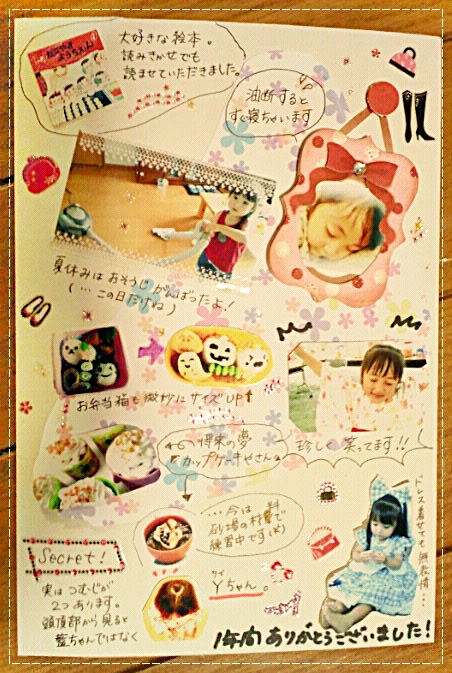 大好きな絵本。
読みきかせでも
読ませていただきました。
油断すると
すぐ寝ちゃいます
夏休みは おそうじ がんばったよ！
（ … この日だけね ）
お弁当箱も微妙に サイズ UP↑
将来の夢
カップケーキやさん
珍しく 笑ってます!!
…今は
砂場の材料で
練習中です(犬)
ドレス着せても無表情…
Secret!
実は つむじが
2つ あります。
頭頂部から見ると
藍ちゃんではなく
Yちゃん。
ワイ
1年間 ありがとうございました！